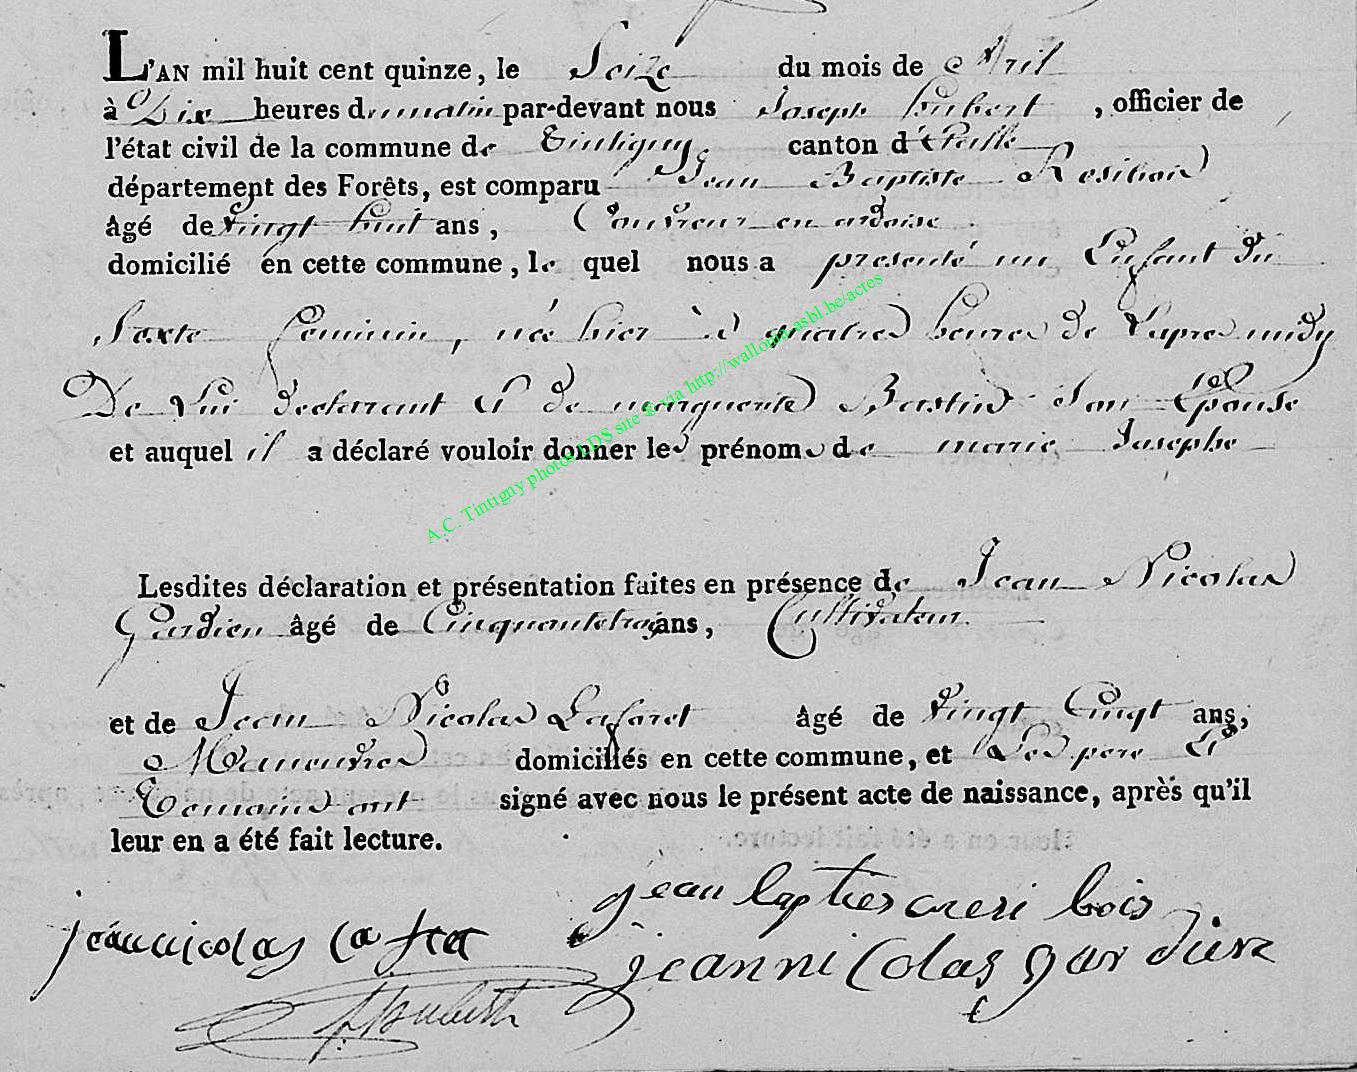 L'AN mil huit cent quinze, le Seize du mois de Avril
à Dix heures du matin par-devant nous Joseph hubert, officier de
l'état civil de la commune de Tintigny canton d'Etalle
département des Forêts, est comparu Jean Baptiste Resibois
âgé de vingt huit ans, Couvreur en ardoise
domicilié en cette commune, le quel nous a presenté un Enfant du
Sexte feminin, née hier à quatres heures de l'apres midy
De Lui declarant Et de marguerite Bastin Son Epouse
et auquel il a déclaré vouloir donner les prénoms de marie Josephe
Lesdites déclaration et présentation faites en présence de Jean Nicolas
Gardien âgé de Cinquante trois ans, Cultivateur
et de Jean Nicolas Laforet âgé de vingt Cinqt ans,
Maneuvres domiciliés en cette commune, et Les pere Et
Temoins ont signé avec nous le présent acte de naissance, après qu'il
leur en a été fait lecture.
jean bapties resi bois
jean nicolas la foret
jean nicolas gardien
Hubert
A.C. Tintigny photos LDS site & via http://wallonia-asbl.be/actes